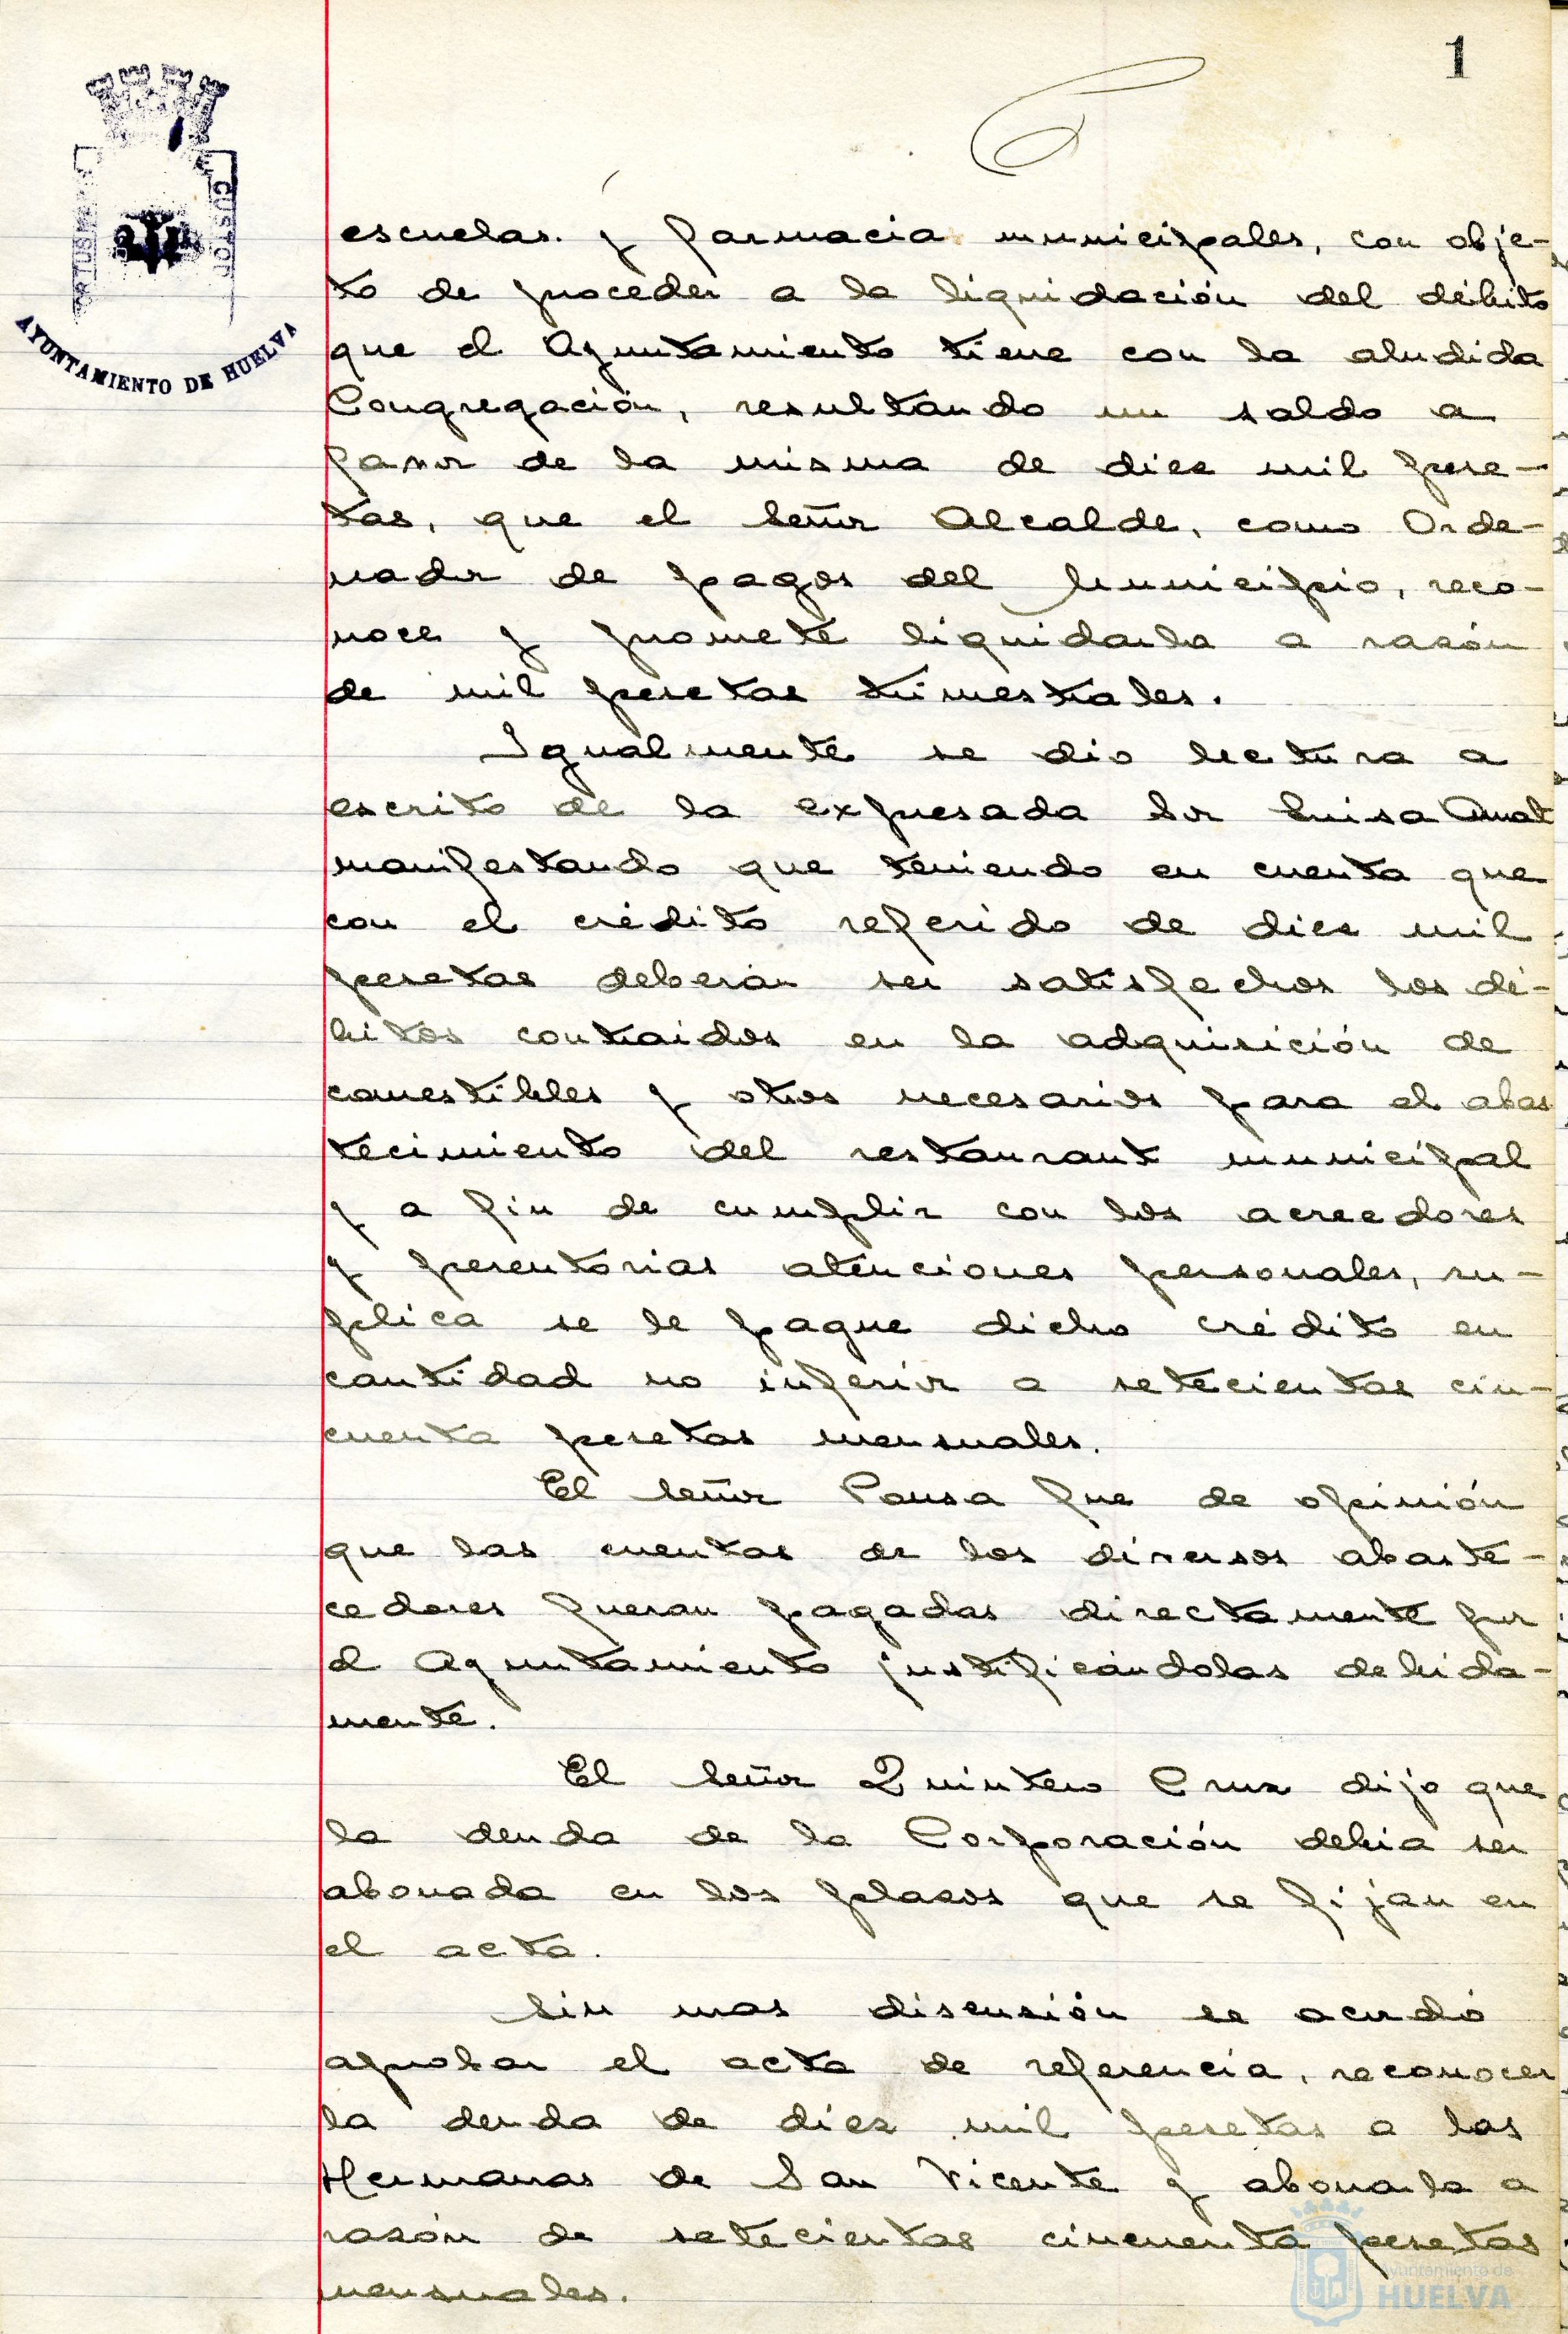 1
AYUNTAMIENTO DE HUELVA
escuelas y farmacia municipales, con obje-
to de proceder a la liquidación del débito
que el Ayuntamiento tiene con la aludida
Congregación, resultando un saldo a
favor de la misma de diez mil pese-
tas, que el Señor Alcalde, como Orde-
nador de pagos del Municipio, reco-
noce y promete liquidarla a razón
de mil pesetas trimestrales.
Igualmente se dió lectura a
escrito de la expresada Sor Luisa Amat
manifestando que teniendo en cuenta que
con el crédito referido de diez mil
pesetas deberán ser satisfechos los dé-
bitos contraidos en la adquisición de
comestibles y otros necesarios para el abas
tecimiento del restaurant municipal
y a fin de cumplir con los acreedores
y perentorias atenciones personales, su-
plica se le pague dicho crédito en
cantidad no inferior a setecientas cin-
cuenta pesetas mensuales.
El Señor Ponsa fue de opinión
que las cuentas de los diversos abaste-
cedores fueran pagadas directamente por
el Ayuntamiento justificándolas debida-
mente.
El Señor Quintero Cruz dijo que
la deuda de la Corporación debia ser
abonada en los plazos que se fijan en
el acta.
Sin mas discusión se acordó
aprobar el acta de referencia, reconocer
la deuda de diez mil pesetas a las
Hermanas de San Vicente y abonarla a
razón de setecientas cincuenta pesetas
mensuales.
Ayuntamiento de
HUELVA